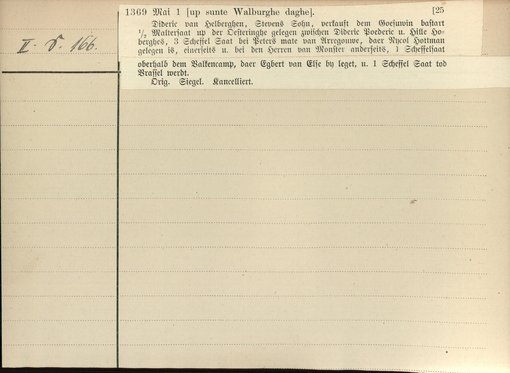 1369 Mai 1 [up sunte Walburghe daghe]. [25
Dideric van Helberghen, Stevens Sohn, verkauft dem Goesuwin bastart
II. d. 166.
1/2 Maltersaat up der Oesteringhe gelegen zwischen Dideric Poederic u. Hille Ho-
berghes, 3 Scheffel Saat bei Peters mate van Arregouwe, daer Nycol Hottman
gelegen is, einerseits u. bei den Herren van Monster anderseits, 1 Scheffelsaat
oberhalb dem Valkencamp, daer Egbert van Else by leget, u. 1 Scheffel Saat tod
Brassel werdt.
Orig. Siegel. Kancelliert.